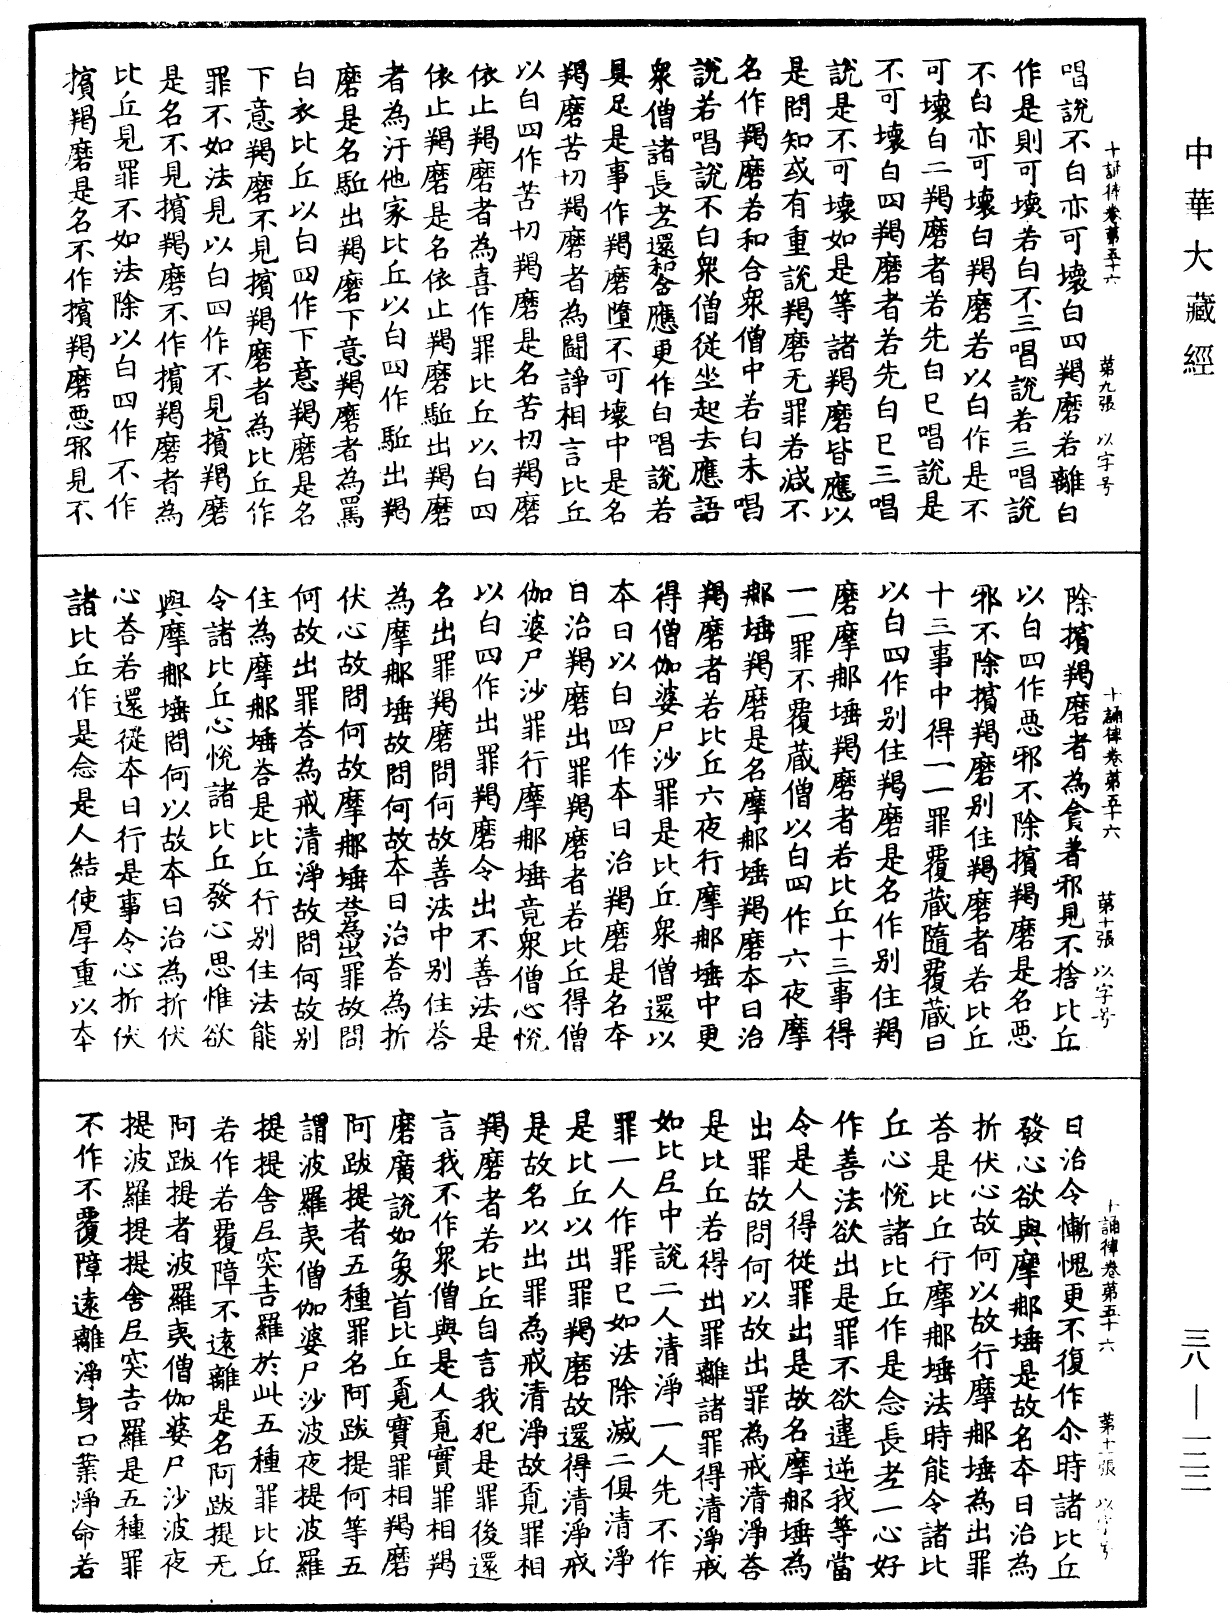 中華大藏經
十誦律卷第五十六　第九張　以字号
唱說不白亦可壞白四羯磨若離白
作是則可壞若白不三唱說若三唱說
不白亦可壞白羯磨若以白作是不
可壞白二羯磨者若先白巳唱說是
不可壞白四羯磨者若先白巳三唱
說是不可壞如是等諸羯磨皆應以
是問知或有重說羯磨无罪若減不
名作羯磨若和合衆僧中若白未唱
說若唱說不白衆僧從坐起去應語
衆僧諸長老還和合應更作白唱說若
具足是事作羯磨墮不可壞中是名
羯磨苦切羯磨者為鬪諍相言比丘
以白四作苦切羯磨是名苦切羯磨
依止羯磨者為喜作罪比丘以白四
依止羯磨是名依止羯磨駈出羯磨
者為汙他家比丘以白四作駈出羯
磨是名駈出羯磨下意羯磨者為罵
白衣比丘以白四作下意羯磨是名
下意羯磨不見擯羯磨者為比丘作
罪不如法見以白四作不見擯羯磨
是名不見擯羯磨不作擯羯磨者為
比丘見罪不如法除以白四作不作
擯羯磨是名不作擯羯磨惡邪見不
十誦律卷第五十六　第十張　以字号
除擯羯磨者為貪著邪見不捨比丘
以白四作惡邪不除擯羯磨是名惡
邪不除擯羯磨別住羯磨者若比丘
十三事中得一一罪覆藏隨覆藏日
以白四作別住羯磨是名作別住羯
磨摩那埵羯磨者若比丘十三事得
一一罪不覆藏僧以白四作六夜摩
那埵羯磨是名摩那埵羯磨本日治
羯磨者若比丘六夜行摩那埵中更
得僧伽婆尸沙罪是比丘衆僧還以
本日以白四作本日治羯磨是名本
日治羯磨出罪羯磨者若比丘得僧
伽婆尸沙罪行摩那埵竟衆僧心悅
以白四作出罪羯磨令出不善法是
名出罪羯磨問何故善法中別住荅
為摩那埵故問何故本日治荅為折
伏心故問何故摩那埵荅為出罪故問
何故出罪荅為戒清淨故問何故別
住為摩那埵荅是比丘行別住法能
令諸比丘心悅諸比丘發心思惟欲
與摩那埵問何以故本日治為折伏
心荅若還從本日行是事令心折伏
諸比丘作是念是人結使厚重以本
十誦律卷第五十六　第十一張　以字号
日治令慚愧更不復作尒時諸比丘
發心欲與摩那埵是故名本日治為
折伏心故何以故行摩那埵為出罪
荅是比丘行摩那埵法時能令諸比
丘心悅諸比丘作是念長老一心好
作善法欲出是罪不欲違逆我等當
令是人得從罪出是故名摩那埵為
出罪故問何以故出罪為戒清淨荅
是比丘若得出罪離諸罪得清淨戒
如比尼中說二人清淨一人先不作
罪一人作罪巳如法除滅二俱清淨
是比丘以出罪羯磨故還得清淨戒
是故名以出罪為戒清淨故覓罪相
羯磨者若比丘自言我犯是罪後還
言我不作衆僧與是人覓實罪相羯
磨廣說如象首比丘覓實罪相羯磨
阿跋提者五種罪名阿跋提何等五
謂波羅夷僧伽婆尸沙波夜提波羅
提提舍尼突吉羅於此五種罪比丘
若作若覆障不遠離是名阿跋提无
阿跋提者波羅夷僧伽婆尸沙波夜
提波羅提提舍尼突吉羅是五種罪
不作不覆障遠離淨身口業淨命若
三八—一二二